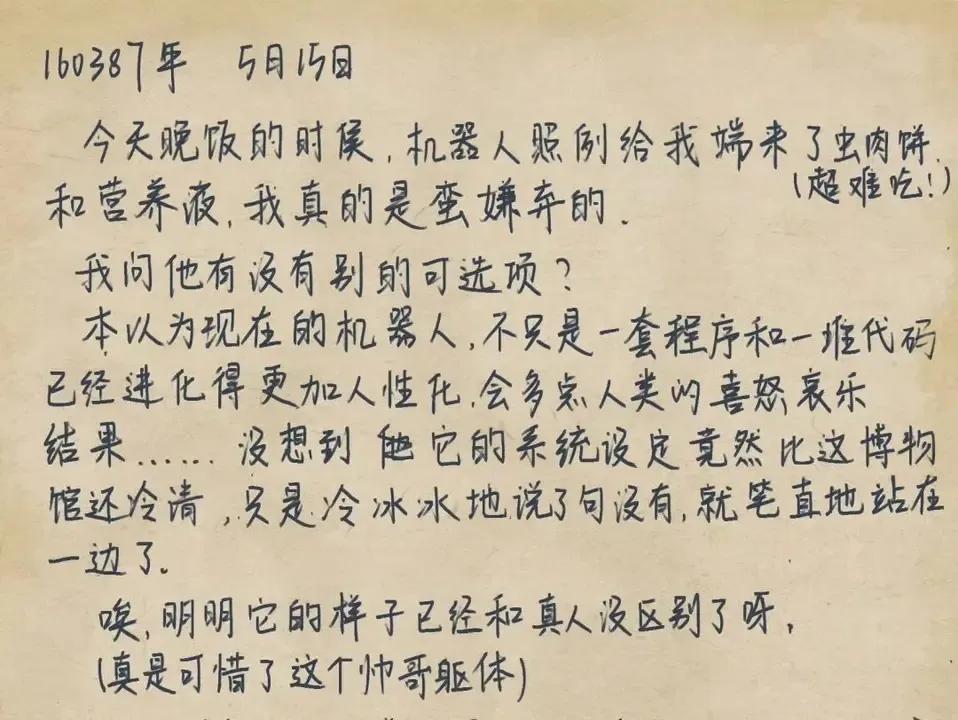 160387年 5月15日
今天晚饭的时侯,机器人照例给我端来了虫肉饼.
(超难吃!)
和营养液,我真的是蛮嫌弃的.
我问他有没有别的可选项?
本以为现在的机器人,不只是一套程序和一堆代码
已经进化得更加人性化.会多点人类的喜怒哀乐
结果...... 没想到 它的系统设定竟然比这博物
馆还冷清,只是冷冰冰地说了句没有,就笔直地站在
一边了.
唉,明明它的样子已经和真人没区别了呀,
(真是可惜了这个帅哥躯体)